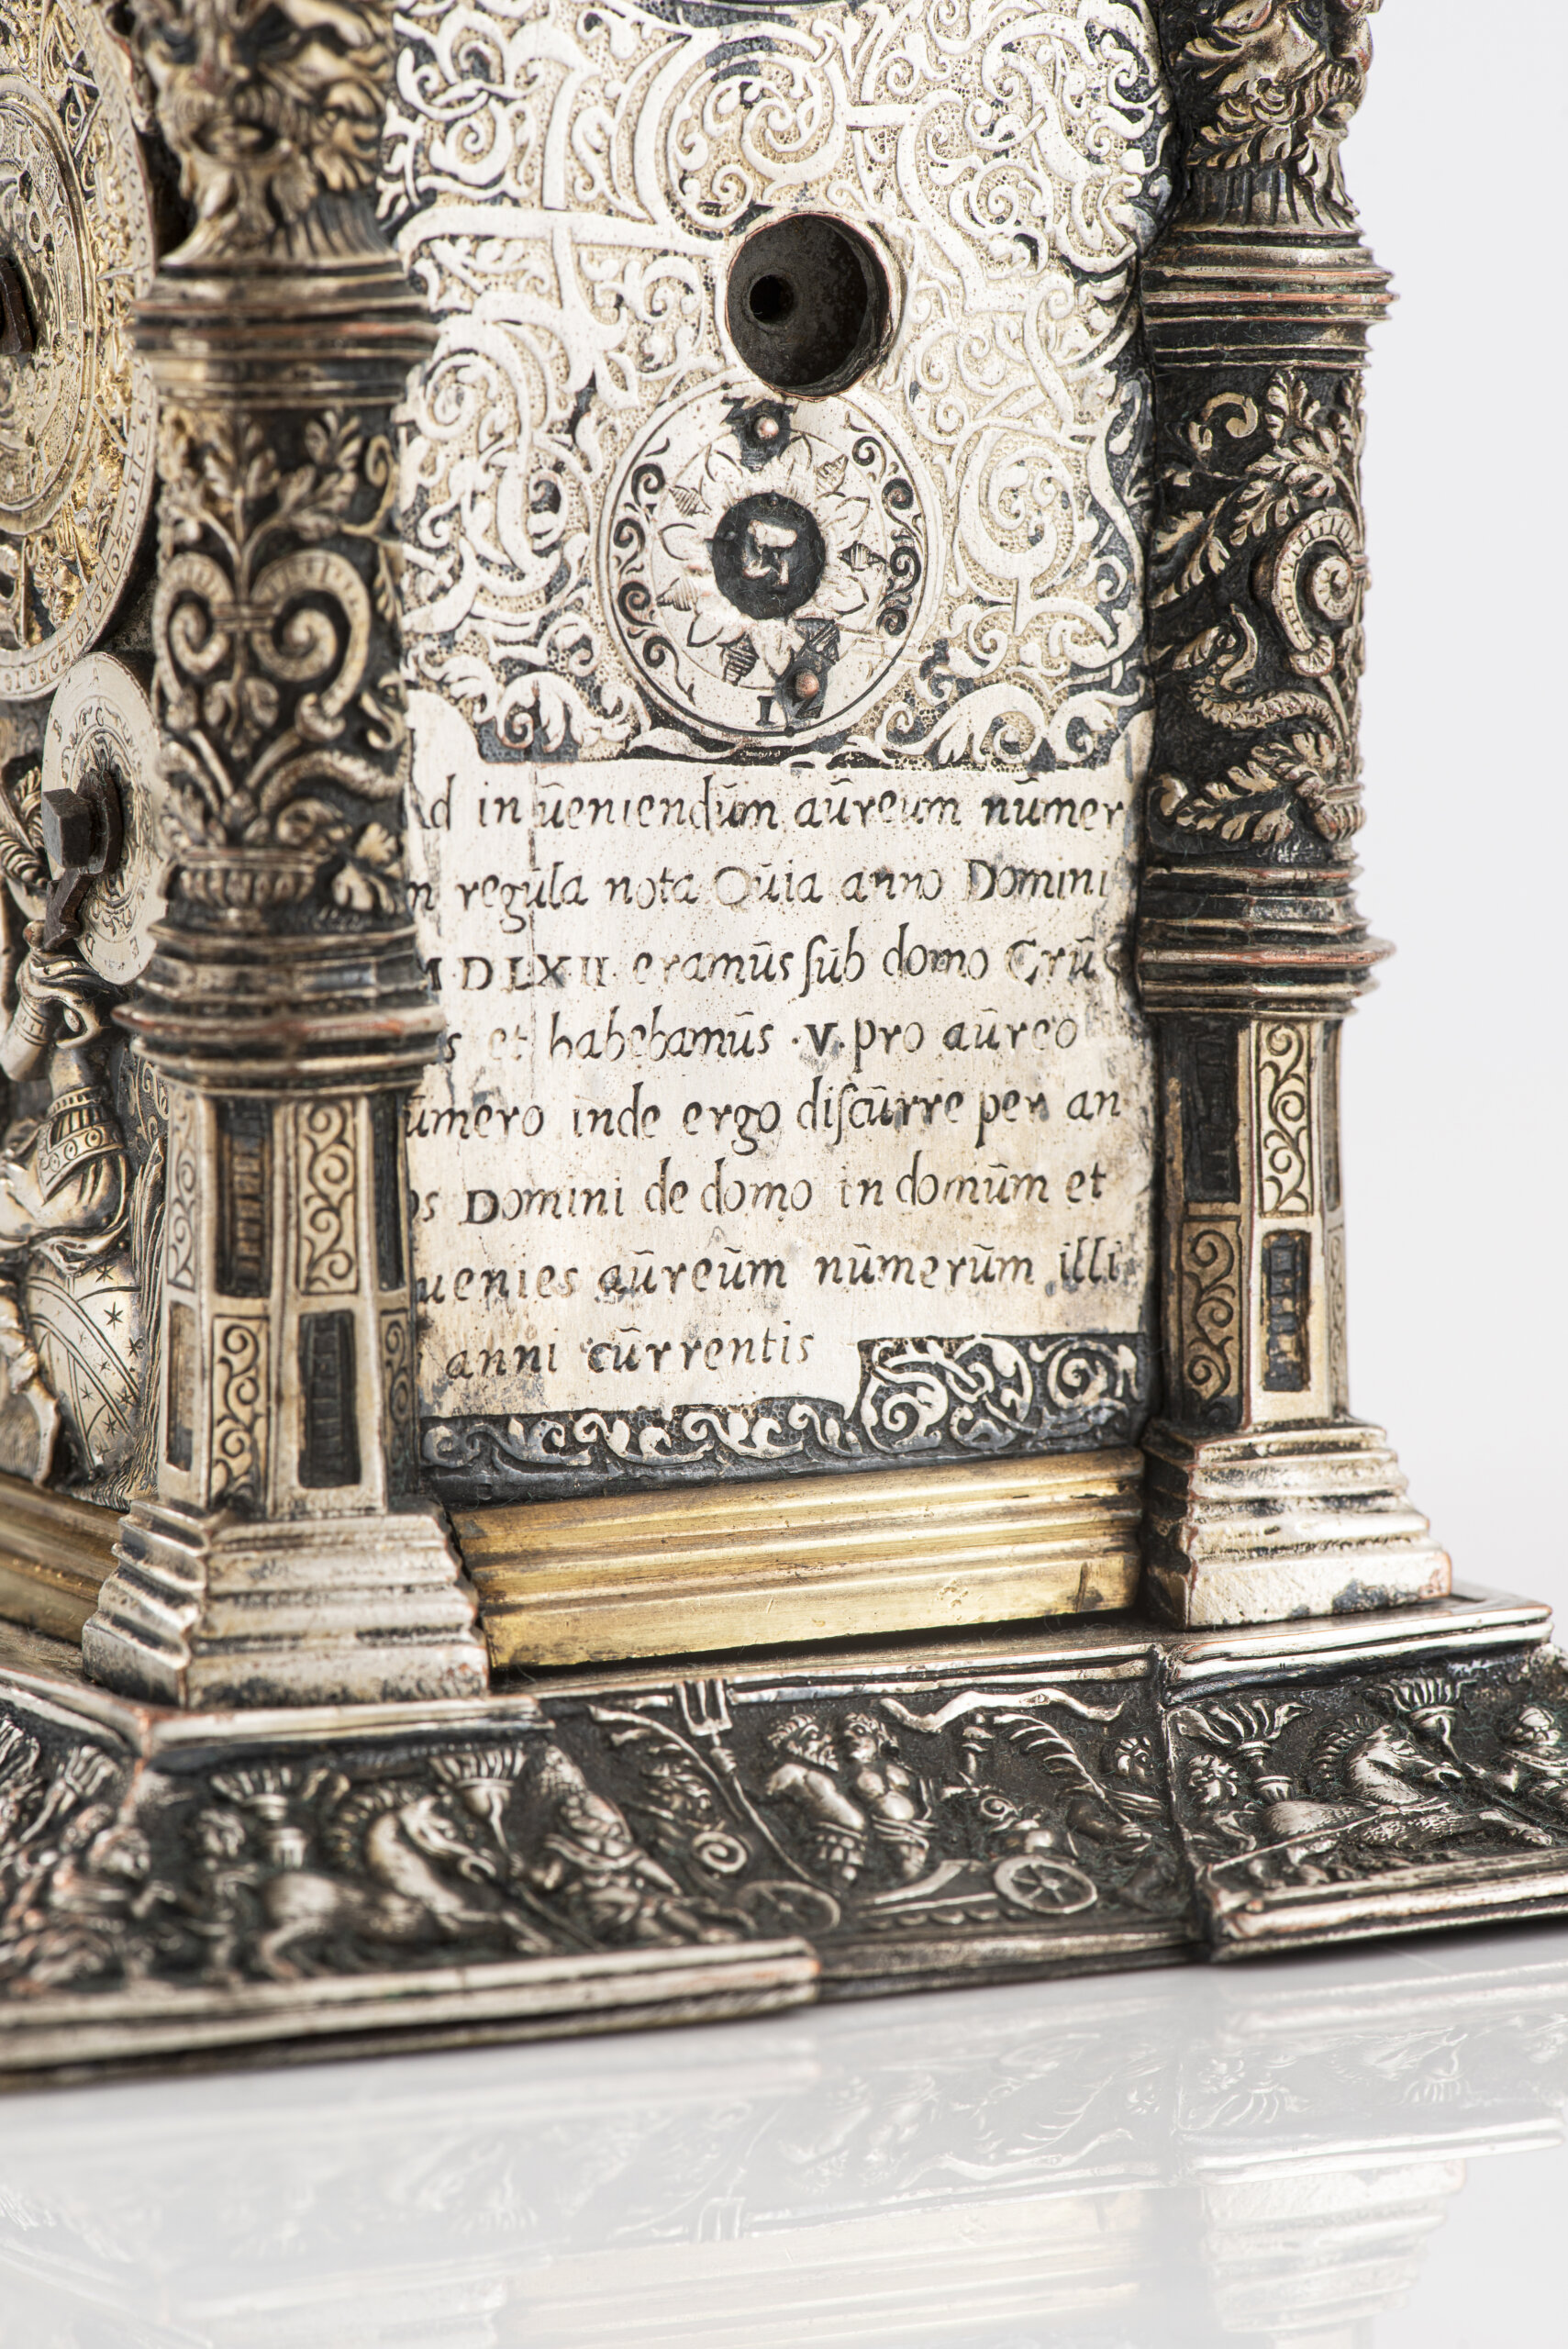 12
Ad in ūeniendūm aūreum nūmer
regūla nota Qūia anno Domini
M·D LXII· eramūs sūb domo Crū
s et habebamūs ·V· pro aūreo
ūmero inde ergo discūrre per an
os Domini de domo in domūm et
uenies aūreūm nūmerūm illi
anni cūrrentis